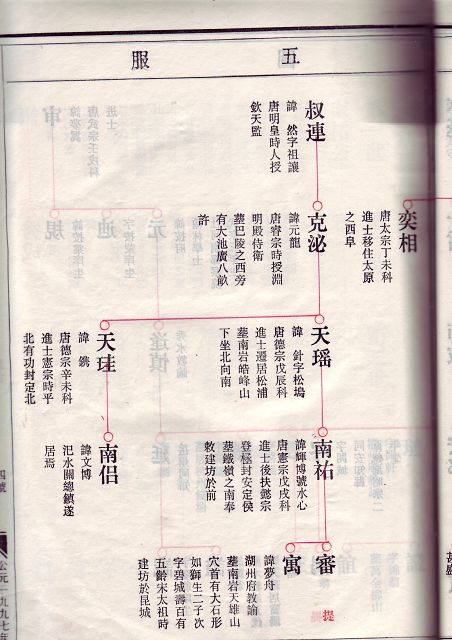 五
服
奕相
唐太宗丁未科
進士移住太原
之西阜
叔連
諱 然字祖讓
唐明皇時人授
欽天監
克泌
諱元龍
唐睿宗時授淵
明殿侍衛
墓巴陵之西旁
有大池廣八畝
許
天瑶
諱 針字松塢
唐德宗戊辰科
進士遷居松浦
墓南岩皓峰山
下坐北向南
天珪
諱 鐫
唐德宗辛未科
進士憲宗時平
北有功封定北
南祐
諱輝博號水心
唐憲宗戊戌科
進士後扶懿宗
登極封安定侯
墓鐵嶺之南奉
敕建坊於前
南侣
諱文博
汜水關總鎮遂
居焉
審
提
寓
諱夢舟
湖州府教諭
墓南岩天雄山
穴首有大石形
如獅生二子次
字碧城壽百有
五齡宋太祖時
建坊於昆城
公元一九九七年